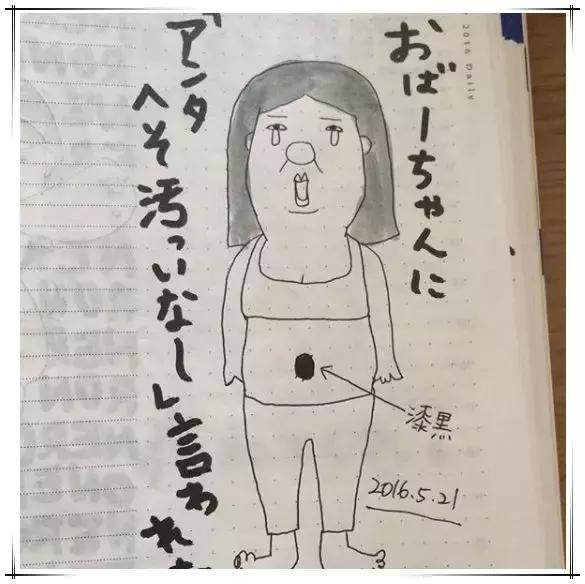 おばーちゃんに
「アンタ
へそ汚っいなし言われ
漆黒
2016.5.21
2016 Daily